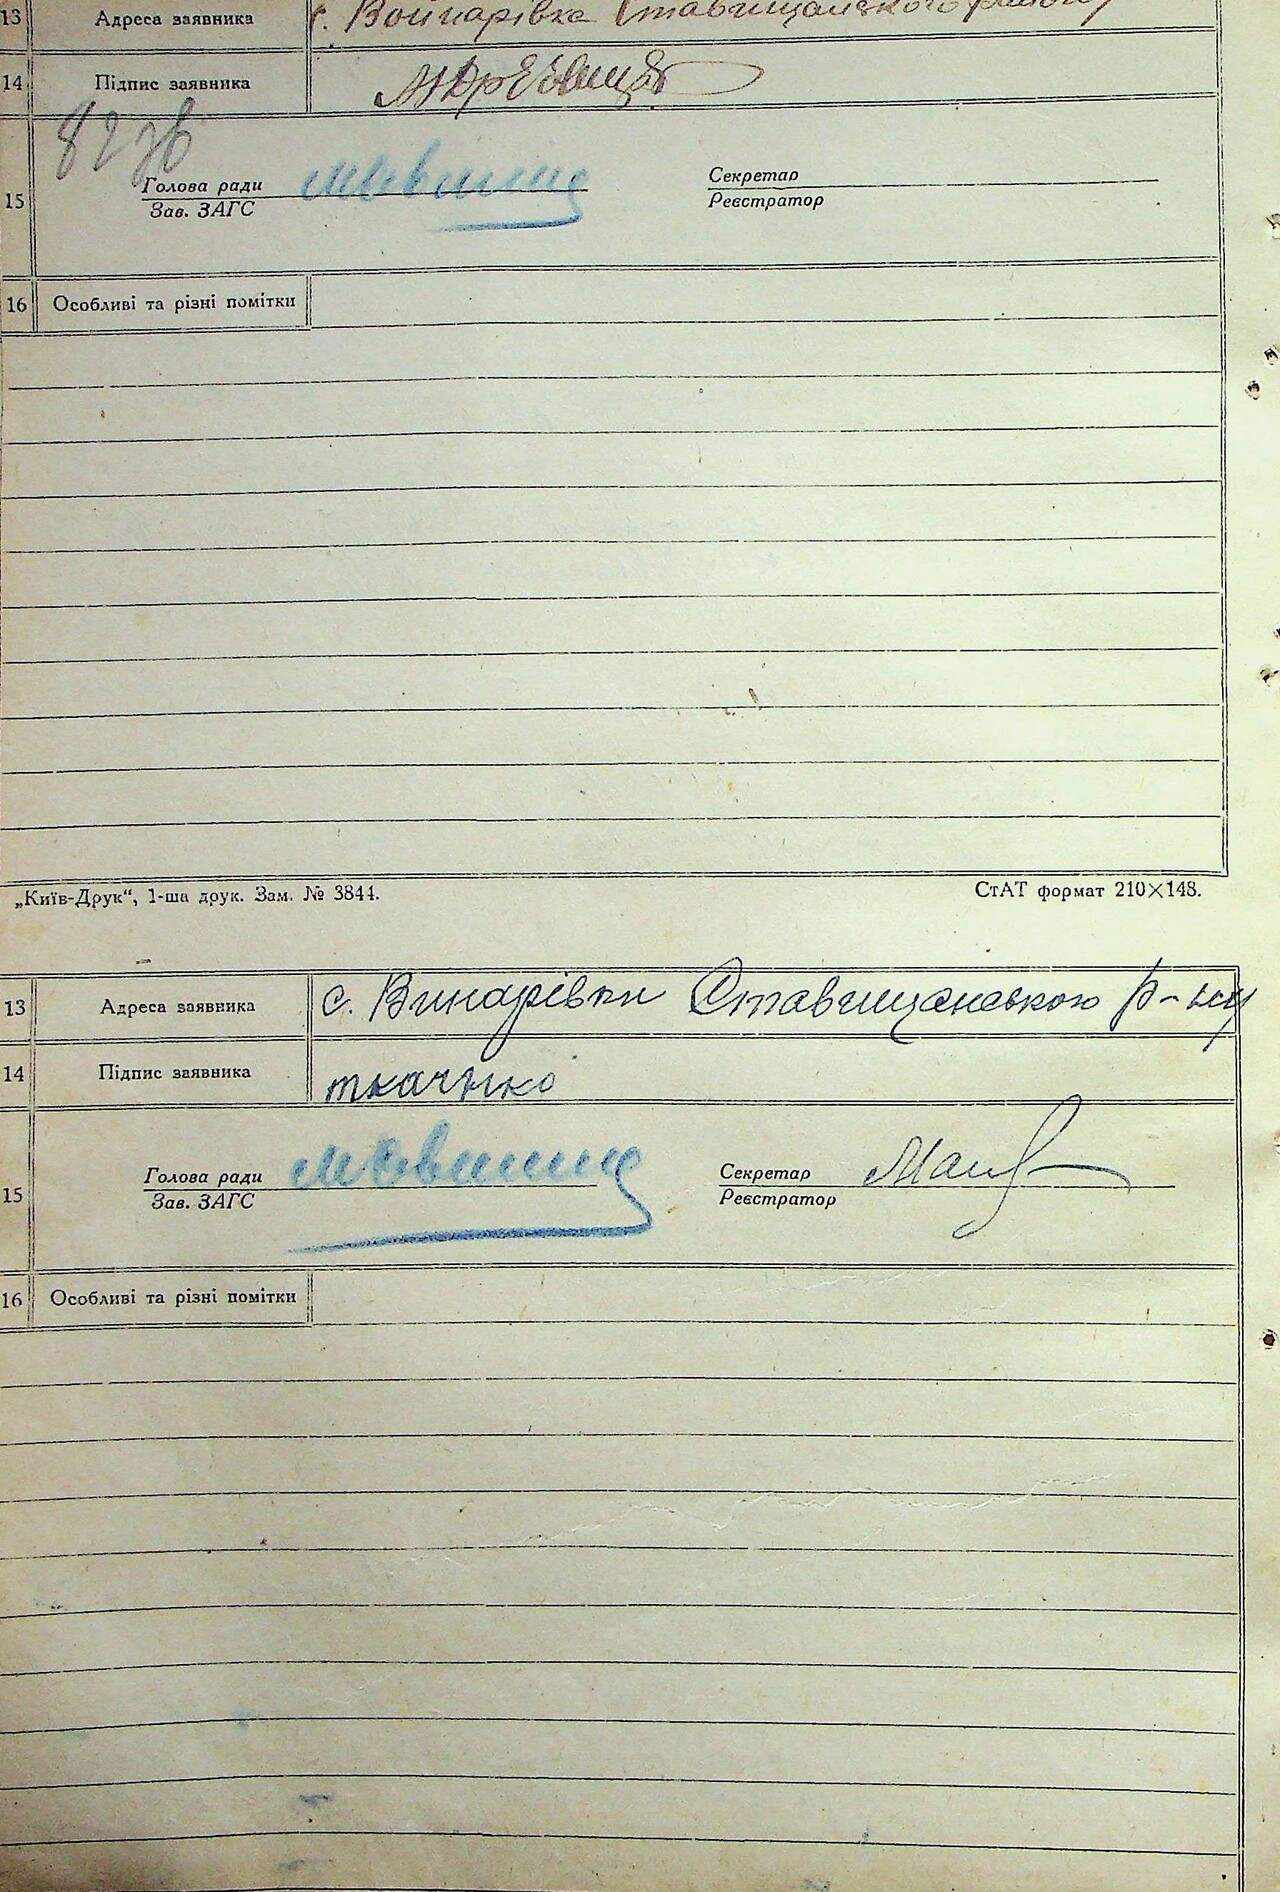 13 Адреса заявника с. Войнарівка Ставищанського району
14 Підпис заявника
15 Голова ради Секретар
Зав. ЗАГС Реєстратор
16 Особливі та різні помітки
„Київ-Друк“, 1-ша друк. Зам. № 3844. СтАТ формат 210×148.
13 Адреса заявника с. Винарівки Ставищанського р-ну
14 Підпис заявника ткачнко
15 Голова ради Секретар
Зав. ЗАГС Реєстратор
16 Особливі та різні помітки